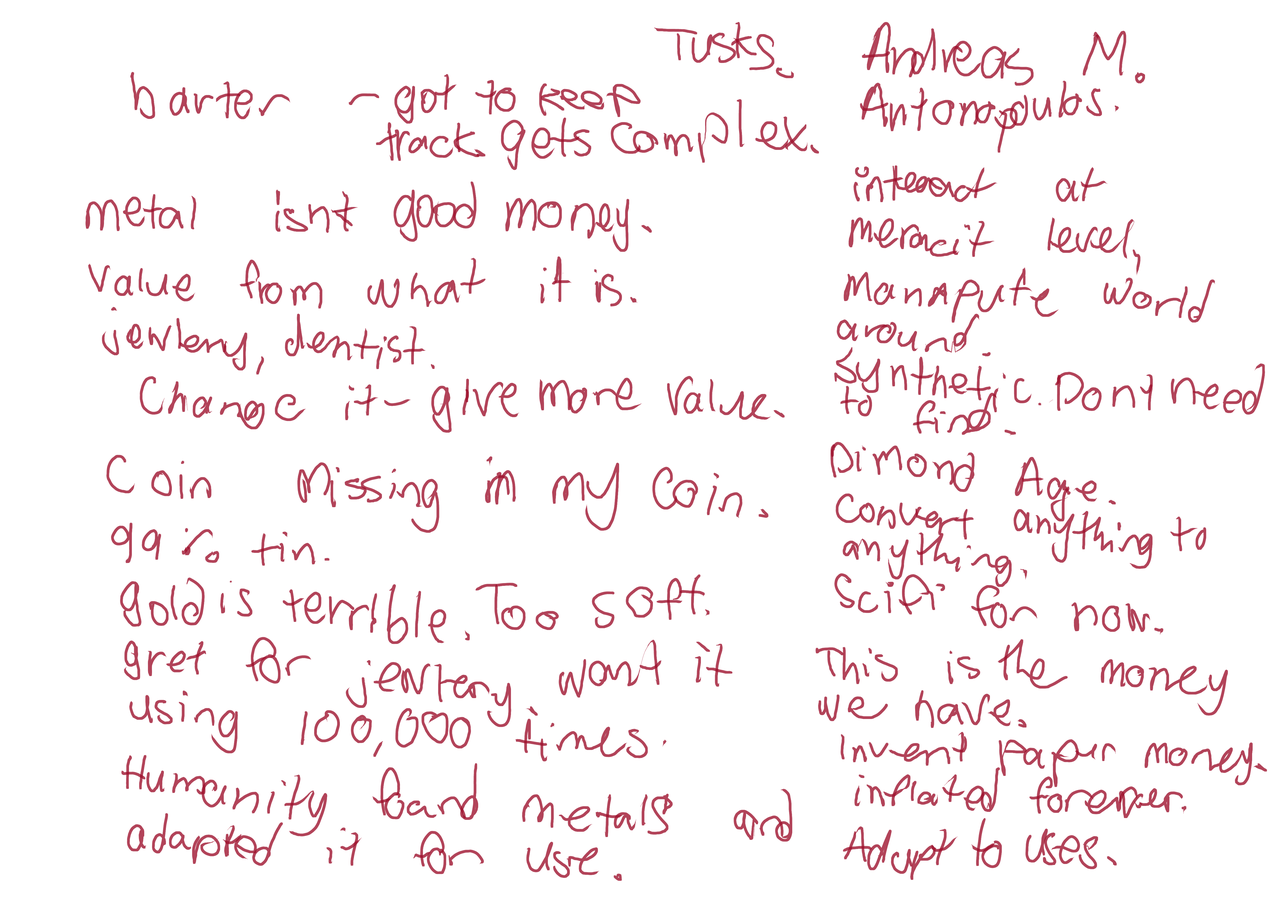 Tusks.
barter - got to keep
track gets complex.
metal isnt good money.
Value from what it is.
jewlery, dentist.
Change it - give more value.
Coin missing in my coin.
99% tin.
gold is terrible. Too soft.
gret for jewlery wont it
using 100,000 times.
Humanity found metals and
adapted it for use.
Andreas M.
Antonopoulos.
interact at
level,
world
around.
Synthetic. Dont need
to find.
Dimond Age.
Convert anything to
anything.
Scifi for now.
This is the money
we have.
Invent paper money.
inflated forever.
Adapt to uses.